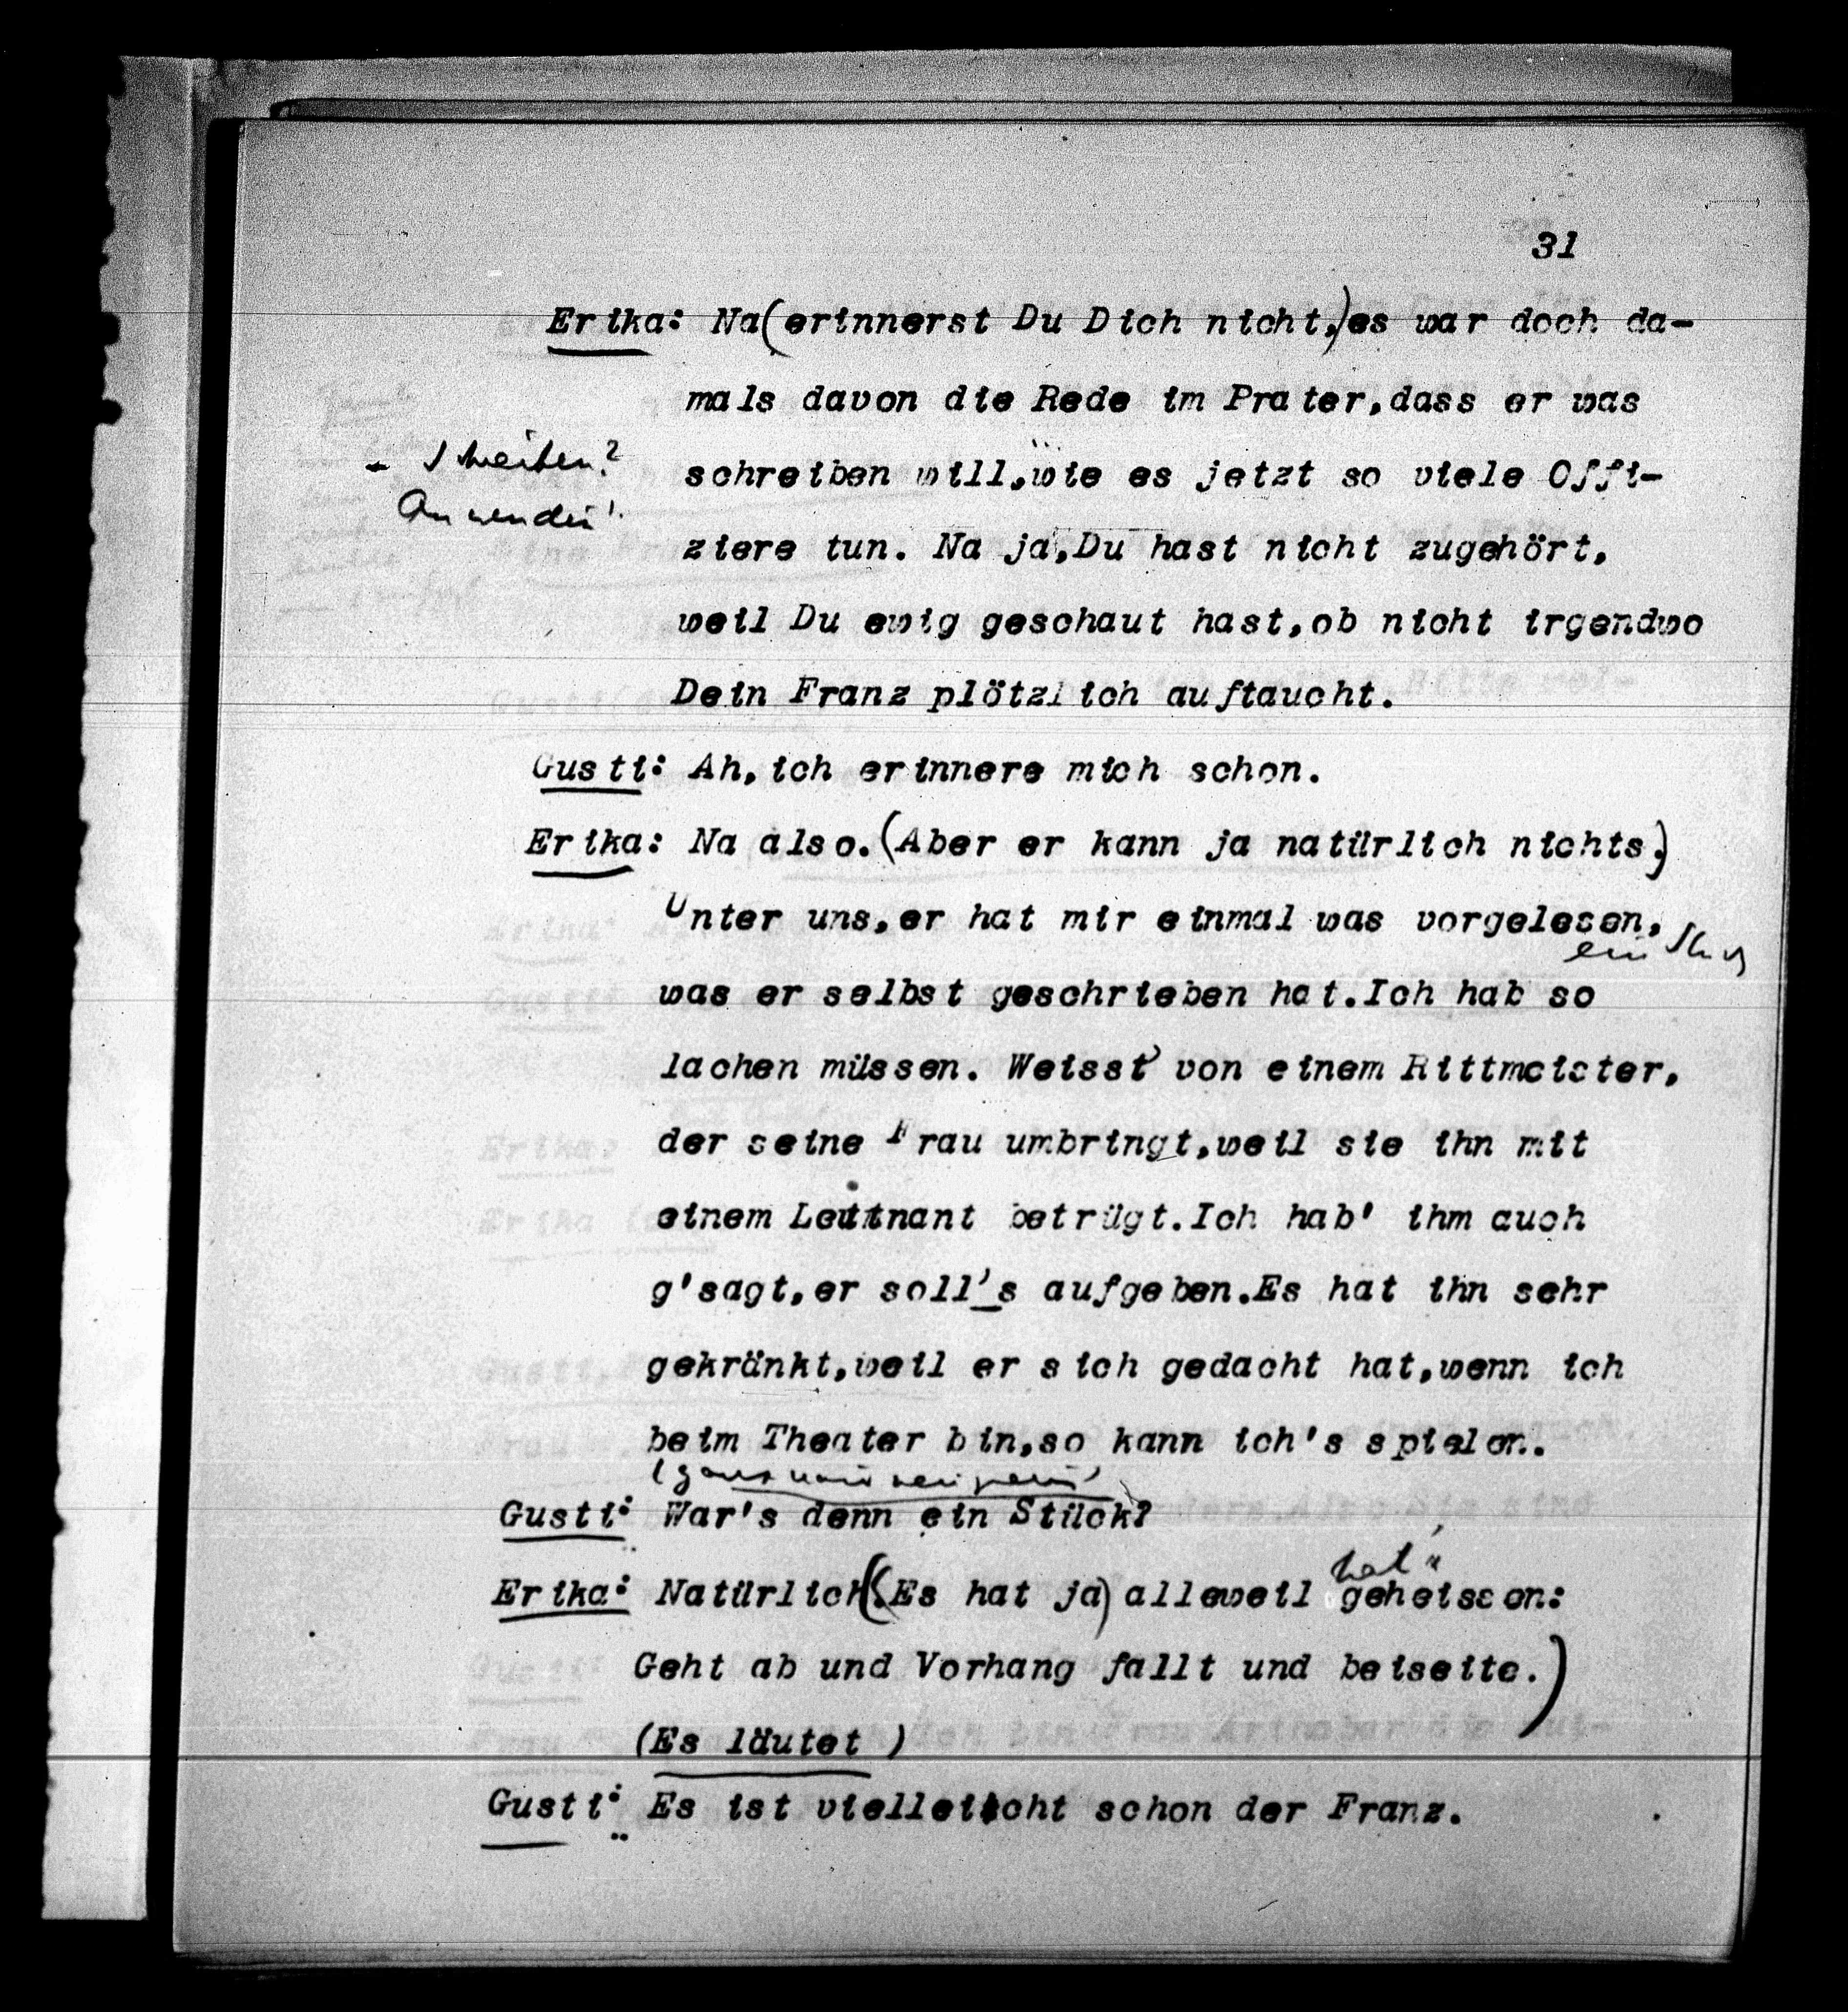 31
Erika: Na(erinnerst Du Dich nicht,)es war doch da-
mals davon die Rede im Prater,dass er was
schreiben will,wie es jetzt so viele Offi-
ziere tun. Na ja,Du hast nicht zugehört,
weil Du ewig geschaut hast,ob nicht irgendwo
Dein Franz plötzlich auftaucht.
Gusti: Ah,ich erinnere mich schon.
Erika: Na also.(Aber er kann ja natürlich nichts.)
Unter uns,er hat mir einmal was vorgelesen,
ein
was er selbst geschrieben hat.Ich hab so
lachen müssen. Weisst von einem Rittmeister,
der seine Frau umbringt,weil sie ihn mit
einem Leutnant betrügt.Ich hab' ihm auch
g'sagt,er soll's aufgeben.Es hat ihn sehr
gekränkt,weil er sich gedacht hat,wenn ich
beim Theater bin,so kann ich's spielen.
Gusti: War's denn ein Stück?
hat
Erika: Natürlich(.Es hat ja) alleweil geheissen:
Geht ab und Vorhang fallt und beiseite.)
(Es läutet )
Gusti: Es ist vielleicht schon der Franz.